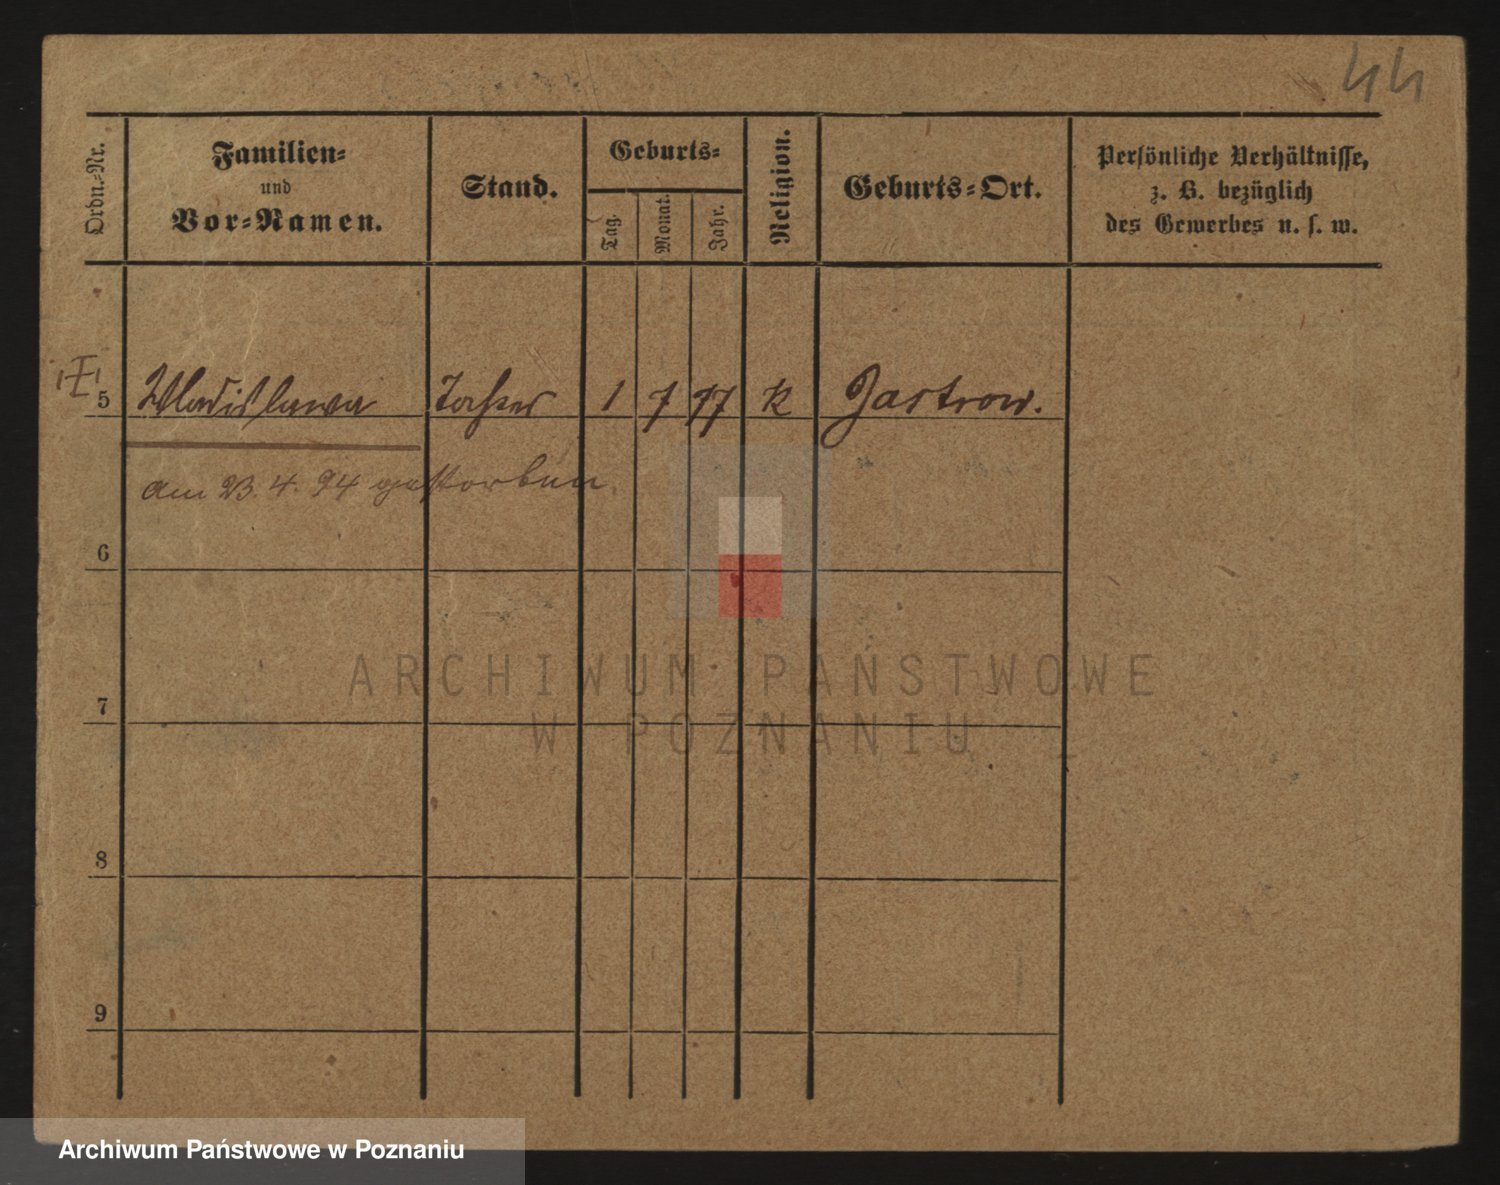 44
Ordn.-Nr.
Familien-
und
Vor-Namen.
Stand.
Geburts-
Tag.
Monat.
Jahr.
Religion.
Geburts-Ort.
Persönliche Verhältnisse,
z. B. bezüglich
des Gewerbes u. s. w.
5 Wladislawa Tochter 1 7 77 k Jastrow.
am 23. 4. 94 gestorben.
6
ARCHIWUM PAŃSTWOWE
7
W POZNANIU
8
9
Archiwum Państwowe w Poznaniu